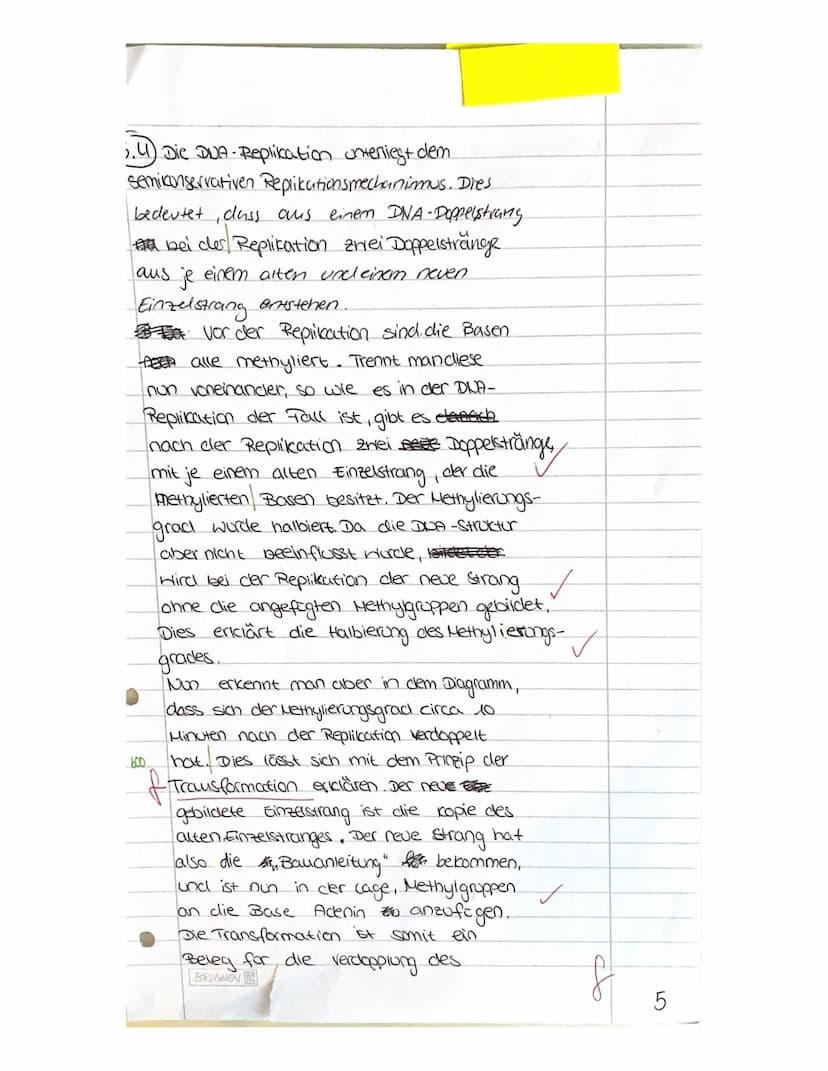 .4) Die DNA-Replikation unterliegt dem
semikonservativen Replikationsmechanismus. Dies
bedeutet, dass aus einem DNA-Doppelstrang
bei der Replikation zwei Doppelstränge
aus je einem alten und einem neuen
Einzelstrang entstehen.
Vor der Replikation sind die Basen
alle methyliert. Trennt man diese
nun voneinander, so wie es in der DNA-
Replikation der Fall ist, gibt es
nach der Replikation zwei Doppelstränge,
mit je einem alten Einzelstrang, der die
methylierten Basen besitzt. Der Methylierungs-
grad wurde halbiert. Da die DNA-Struktur
aber nicht beeinflusst wurde,
wird bei der Replikation der neue Strang
ohne die angefügten Methylgruppen gebildet.
Dies erklärt die Halbierung des Methylierungs-
grades.
Nun erkennt man aber in dem Diagramm,
dass sich der Methylierungsgrad circa 10
Minuten nach der Replikation verdoppelt
600 hat. Dies lässt sich mit dem Prinzip der
f Transformation erklären. Der neue
gebildete Einzelstrang ist die Kopie des
alten Einzelstranges. Der neue Strang hat
also die „Bauanleitung" bekommen,
und ist nun in der Lage, Methylgruppen
an die Base Adenin anzufügen.
Die Transformation ist somit ein
Beleg für die Verdopplung des
BRUNNEN
f
5